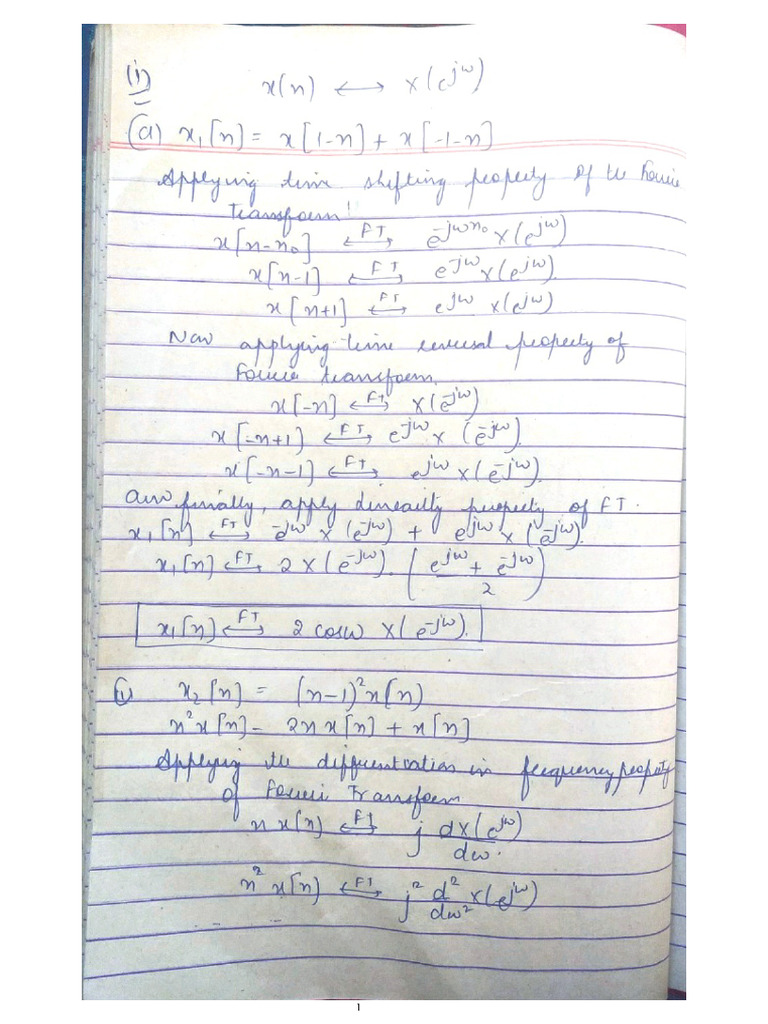 (i) x(n) ⟷ X(e^{jω})
(a) x₁[n] = x[1-n] + x[-1-n]
Applying time shifting property of the Fourier
Transform!
x[n-n₀] ⟷^{FT} e^{-jωn₀} X(e^{jω})
x[n-1] ⟷^{FT} e^{-jω} X(e^{jω}).
x[n+1] ⟷^{FT} e^{jω} X(e^{jω})
Now applying time reversal property of
Fourier transform.
x[-n] ⟷^{FT} X(e^{-jω})
x[-n+1] ⟷^{FT} e^{-jω} X (e^{-jω}).
x[-n-1] ⟷^{FT} e^{jω} X(e^{-jω}).
finally, apply linearity property of FT.
x₁[n] ⟷^{FT} e^{-jω} X (e^{-jω}) + e^{jω} X(e^{-jω}).
x₁[n] ⟷^{FT} 2 X(e^{-jω}). ((e^{jω} + e^{-jω})/2)
x₁[n] ⟷^{FT} 2 cosω X(e^{-jω}).
x₂[n] = (n-1)² x[n)
n² x[n] - 2n x[n] + x[n]
Applying the differentiation in frequency property
of Fourier Transform
n x[n) ⟷^{FT} j dX(e^{jω})/dω.
n² x[n) ⟷^{FT} j² d²/dω² X(e^{jω})
1